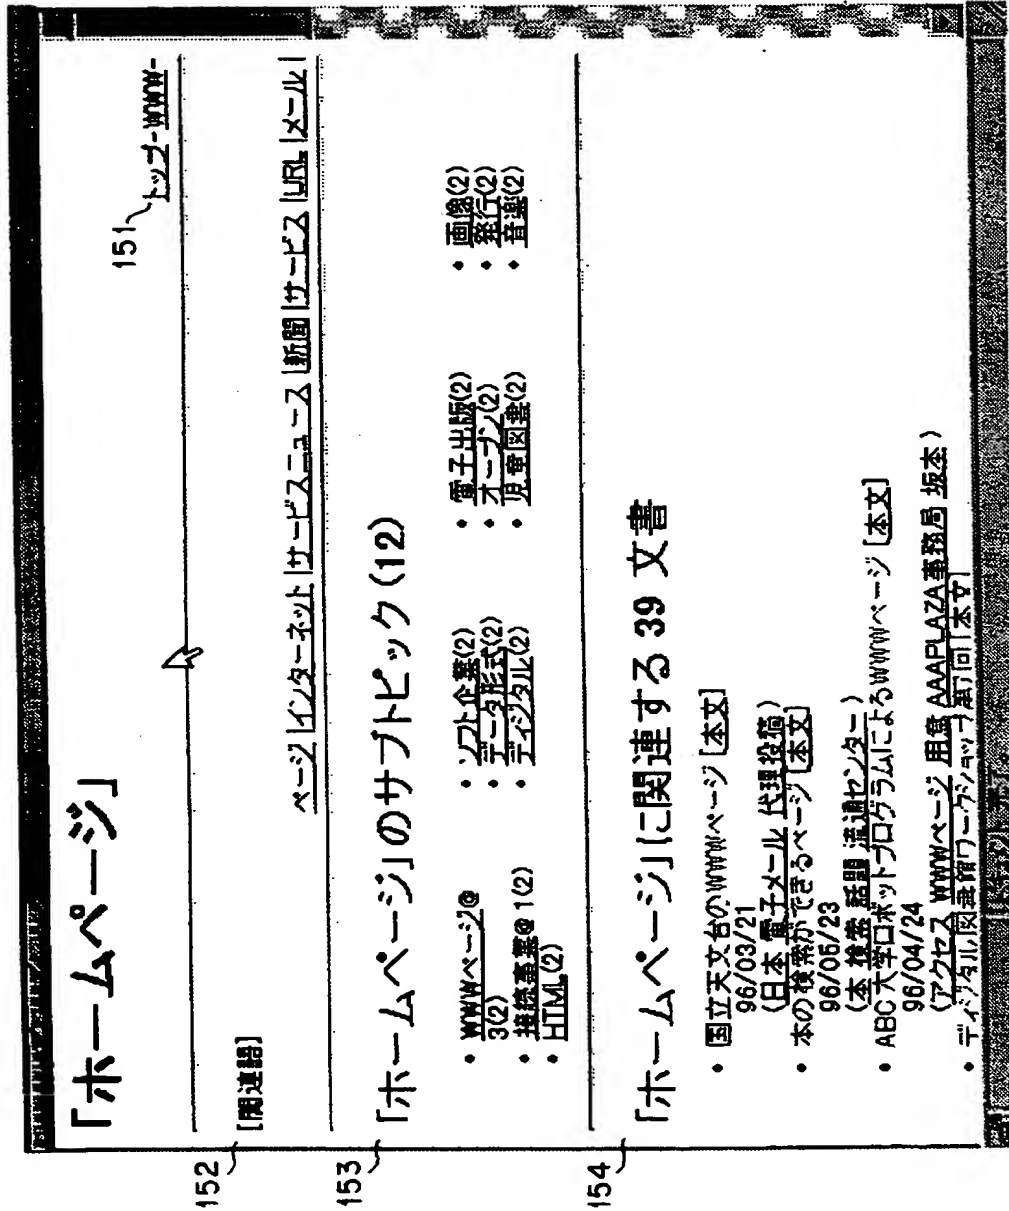 「ホームページ」
151
トップ-WWW-
152
[関連語]
ページ |インターネット |サービスニュース |新聞 |サービス |URL |メール |
153
「ホームページ」のサブトピック (12)
• WWWページ@3(2)
• 接続事業@1(2)
• HTML(2)
• ソフト企業(2)
• データ形式(2)
• ディジタル(2)
• 電子出版(2)
• オープン(2)
• 児童図書(2)
• 画像(2)
• 発行(2)
• 音楽(2)
154
「ホームページ」に関連する 39 文書
• 国立天文台のWWWページ [本文]
96/03/21
(日本 電子メール 代理投稿)
• 本の検索ができるページ [本文]
96/05/23
(本 検索 話題 流通センター)
• ABC大学ロボットプログラムによるWWWページ [本文]
96/04/24
(アクセス WWWページ 用意 AAAPLAZA事務局 坂本)
• ディジタル図書館ワークショップ第7回 [本文]